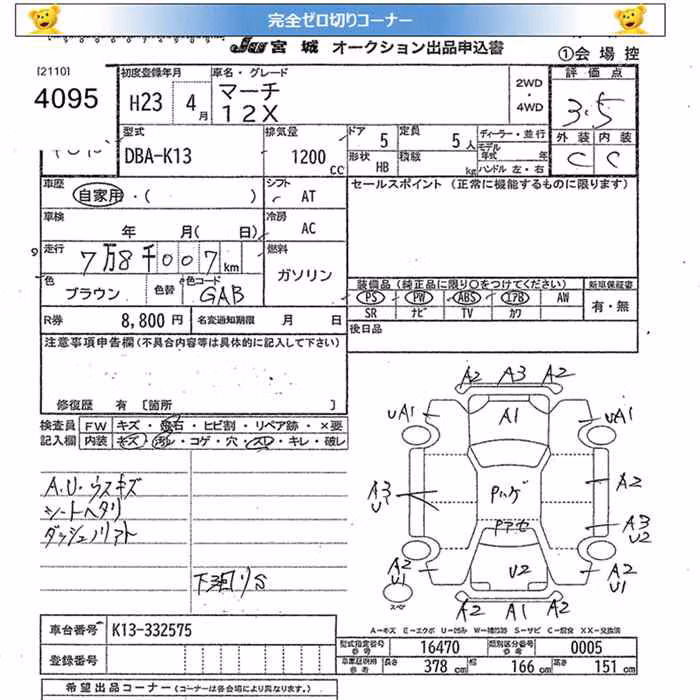 完全ゼロ切りコーナー
JU 宮城 オークション出品申込書 ①会場控
[2110]
4095
初度登録年月 H23 4月
車名・グレード マーチ 12X
2WD・4WD
評価点 3.5
外装 C 内装 C
型式 DBA-K13
排気量 1200cc
ドア 5 定員 5人
形状 HB 積載 kg
ディーラー・並行
モデル年式 年
ハンドル 左・右
車歴 自家用・( )
シフト AT
セールスポイント (正常に機能するものに限ります)
車検 年 月( 日)
冷房 AC
走行 7万8千007km
燃料 ガソリン
色 ブラウン 色替 色コード GAB
装備品 (純正品に限り○をつけてください) 新車保証書
PS PW ABS エアB AW 有・無
SR ナビ TV カワ
R券 8,800円 名変通知期限 月 日
後日品
注意事項申告欄(不具合内容等は具体的に記入して下さい)
修復歴 有 [箇所 ]
検査員記入欄
FW キズ・飛石・ヒビ割・リペア跡・×要
内装 キズ・汚れ・コゲ・穴・スレ・キレ・破レ
A.U.ウスキズ
シートヘタリ
下廻りS
A2 A3 A2
UA1 A1 UA1
A3 U1 A2
A3 U2
A2 U1 U2 A2 U1
スペア
A2 A1 A2
A-キズ E-エクボ U-凹み W-補修跡 S-サビ C-腐食 XX-交換済
車台番号 K13-332575
登録番号
型式指定番号 参考 16470 類別区分番号 参考 0005
車車証明用 参考 長さ 378cm 幅 166cm 高さ 151cm
希望出品コーナー(コーナーは各会場により異なります。)